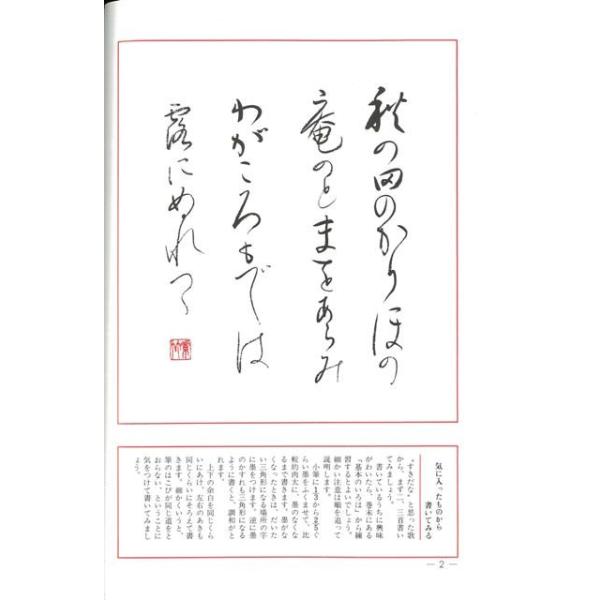 秋の田のかりほの
庵のとまをあらみ
わがころもでは
露にぬれつゝ
気に入ったものから
書いてみる
"すきだな"と思った歌
から、まず一、二首書い
てみましょう。
書いているうちに興味
がわいたら、巻末にある
「基本のいろは」から練
習するとよいでしょう。
細かい注意は順を追って
説明します。
小筆に1/3から2/5ぐ
らい墨をふくませて、比
較的肉太に、墨のなくな
るまで書きます。墨がな
くなったときは、だいた
い三角形になる場所の字
に墨をつけます。逆に墨
のかすれも三角形になる
ように書くと、調和がと
れます。
上下の余白を同じくら
いにあけ、左右のあきも
同じくらいにそろえて書
きます。細かくいうと、
筆のはこびが同じ道をと
おらない、ということに
気をつけて書いてみまし
ょう。
— 2 —